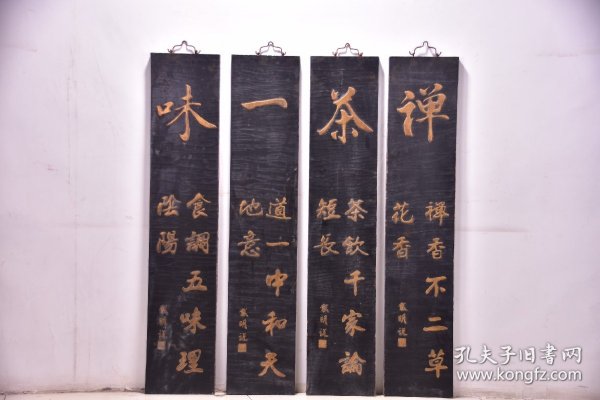 禅
禅香不二草
花香
戴明説
茶
茶飲千家論
短長
戴明説
一
道一中和天
地意
戴明説
味
食調五味理
陰陽
戴明説
孔夫子旧书网
www.kongfz.com